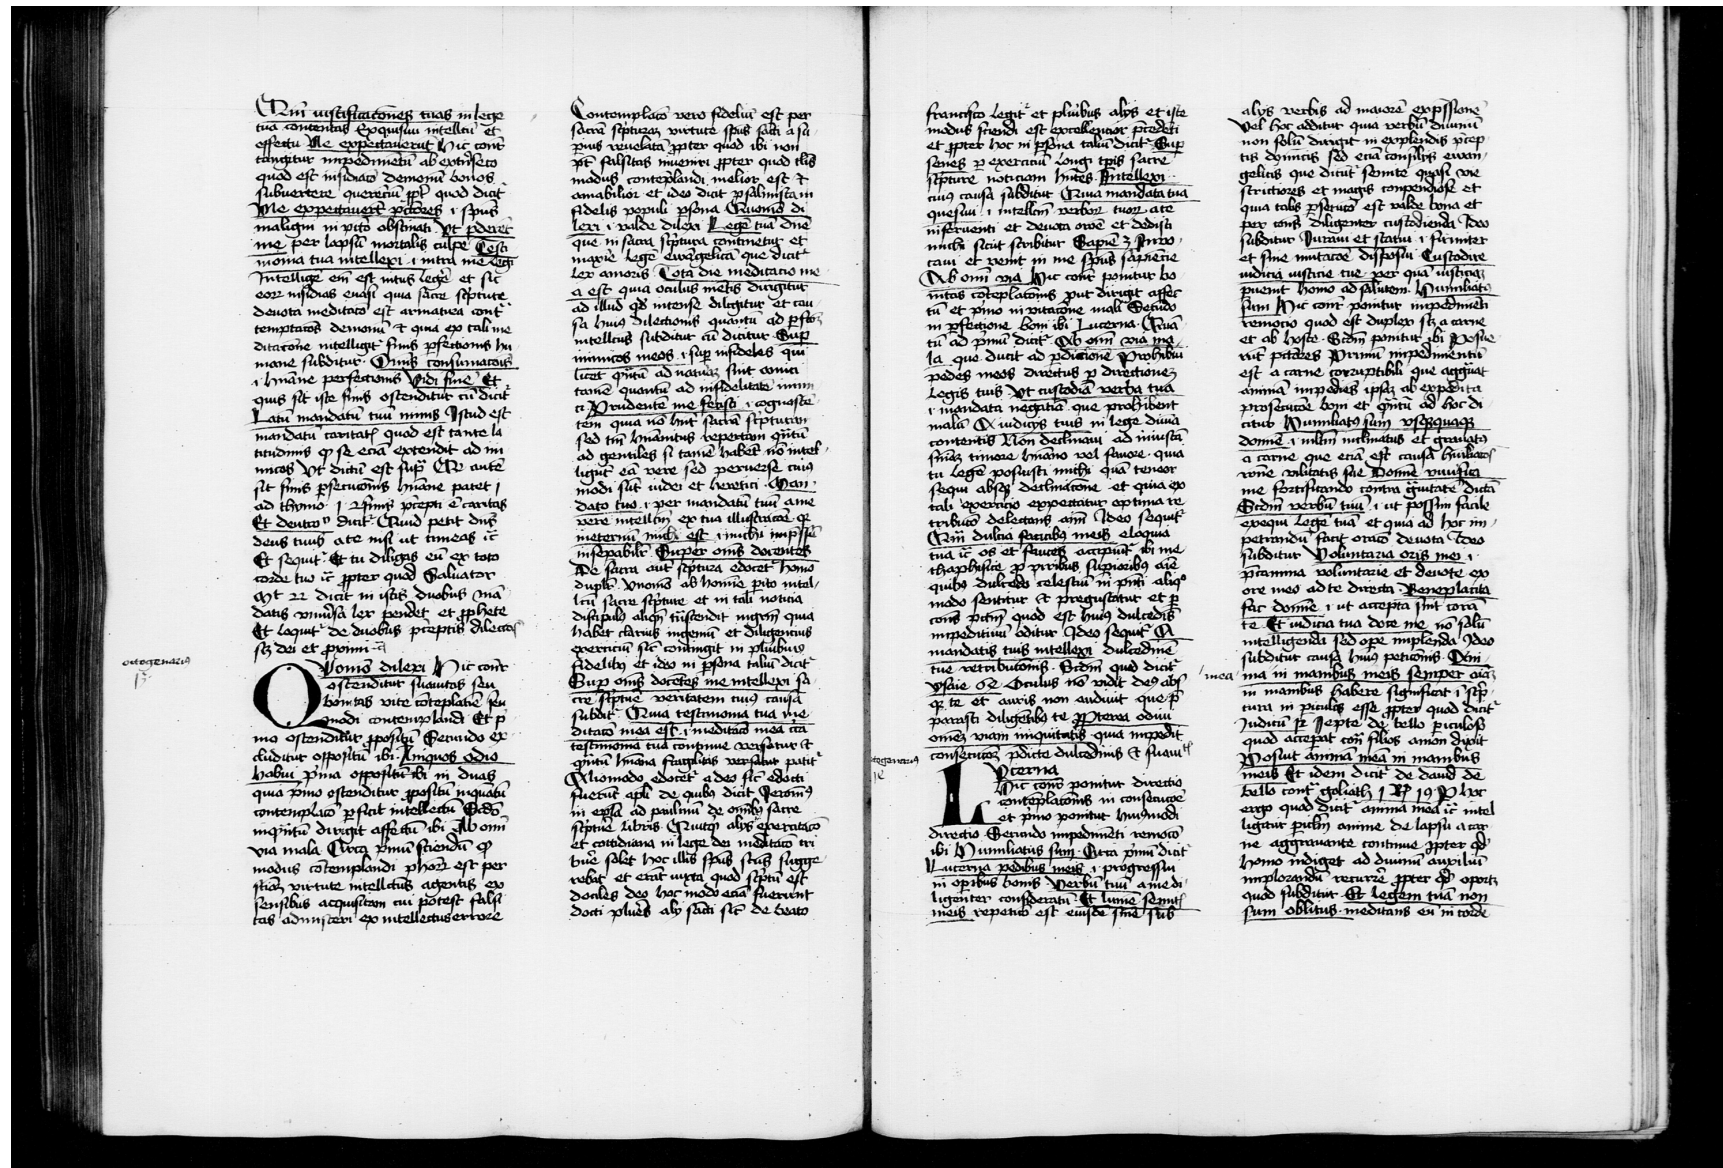 Qm̄ iustificacōnes tuas in lege
tua contentas Exquisiui intellcū et
effectu Me expectauerūt Hic conn̄
tangitur impedimētū ab extrīseco
quod est insidiacō demonū bonos
subuertere querēciū ppt̓ quod dicit̓
Me expectauerūt pctōres .i. spūs
maligni in pctō obstinati Vt pderēt
me per lapsū mortalis culpe Testi
monia tua intellexi .i. intra me legi
Intelligē em̄ est intus legē et sic
eor̄ insidias euasi quia sacre sc̓pture
deuota meditacō est armatura cont̓
temptacōs demonū et quia ex tali me
ditacōne intelligit̓ finis pfectionis hu
mane subditur Omīs consumacōis
.i. hūane perfectionis Vidi finē Et
quis sit iste finis ostenditur cū dicit̓
Latū mandatū tuū nimis Istud est
mandatū caritatꝭ quod est tante la
titudinis ꝙ se eciā extendit ad ini
micos Vt dictū est sup̄
sit finis psecucōnis hūane patet i
ad thimo i finis p̄cepti ē caritas
Et deutroꝰ dicit̓ Quid petit dn̄s
deus tuus a te nisi ut timeas
Et sequit̓ Et tu diligas eū ex toto
corde tuo ppter quod Saluator
Mt 22 dicit in istis duobus mā
datis vniūsa lex pendet et pphete
Et loquit̓ de duobus p̄ceptis dilectōis
sꝫ dei et pximi
octogenariꝰ
Quonıō dilexi Hic conn̄
ostenditur suauitas seu
bonitas vite cōteplatiē seu
modi contemplandi Et p̓
mo ostenditur ppositū Secundo ex
cluditur oppositū ibi Iniquos odio
habui p̓ma oppositū ibi in duas
quia p̓mo ostenditur ppositū inquātū
contemplacō pficit intellectū Scdō
inqn̄tū dirigit affectū ibi Ab omī
via mala Circa p̓mū sciendū ꝙ
modus cōtemplandi phōr̄ est per
sciam̄ virtute intellectus agentis ex
sensibus acquisitam cui potest falsi
tas admisceri ex intellectus errore
Contemplacō vero fidelium est per
sacrā sc̓pturaꝫ virtute spūs sancti a su
p̓ius reuelata ppter quod ibi non
pt̓ falsitas inueniri ppter quod tl̓is
modus conteplandi melior est et
amabilior et ideo dicit psalmista in
fidelis populi psona Quomō di
lexi .i. valde dilexi Legē tuā dn̄e
que in sacra sc̓ptura continetur et
maxie legē ewāgelicā que dicit̓
lex amoris Tota die meditacio me
a est quia oculus mētis dirigitur
ad illud qd̓ intense diligitur et cau
sa huiꝰ dilectionis quantū ad pfcōꝫ
intellectus subditur cū dicitur Sup
inimicos meos .i. sup infideles qui
licet qn̄tū ad naturā sint coniūcti
tamē quantū ad infidelitatē inimi
ci Prudentē me fecisti .i. cognoscē
tem quia nō hn̄t sacrā sc̓pturam
sed tm̄ hūanitus repertam qn̄tū
ad gentiles si tamē habēt nō intel
ligūt eā vere sed peruerse cuiꝰ
modi sūt iudei et heretici Man
dato tuo .i. per mandatū tuū a me
vere intellcm̄ ex tua illustracōe ꝙ
ineternū michi est .i. michi
inseparabilr̄ Super oms docentes
De sacra aut̄ sc̓ptura edocet̓ homo
duplr̄ Vnomō ab homīe p̄ito intel
lcū sacre sc̓pture et in tali noticia
discipulus aliqn̄ trāscendit mgrm̄ quia
habet clarius ingeniū et diligencius
exerciciū sic contingit in pluribus
fidelibꝫ et ideo in psona taliū dicit̓
Sup oms docētes me intellexi sa
cre sc̓pture veritatem cuiꝰ causa
subdit̓ Quia testimonia tua me
ditacō mea est .i. meditacō mea circa
testimonia tua continue versatur et
qn̄tū hūana fragilitas versatur patit̓
Aliomodo edocet̓ a deo sic edocti
fuerūt apli de quibꝫ dicit Jeronīꝰ
in epl̓a ad paulinū de omībꝫ sacre
sc̓ptue libris Quitqͥd alijs exercitacō
et cottidiana in lege dei meditacō tri
buē solet hoc illis spūs scūs sugge
rebat et erāt iuxta quod sc̓ptū est
dociles deo hoc modo eciā fuerunt
docti plurēs alij sancti sic̄ de beato
francisco legit̓ et pluribus alijs et iste
modus sciendi est excellencior p̄cedēti
et ppter hoc in psona taliū dicit̓ Sup
senes p exerciciū longi tp̄is sacre
sc̓pture noticiam hn̄tes Intellexi
cuiꝰ causa subditur Quia mandata tua
quesiui .i. intellcm̄ verboꝝ tuoꝝ a te
inferuenti et deuota orōne et dedisti
michi sicut scribitur Sapiē 7 Inuo
caui et venit in me spūs sapiēcie
Ab omī via Hic conn̄ ponitur bo
nitas cōteplacōnis put dirigit affec
tū et p̓mo in vitacōne mali Secūdo
in pfectione boni ibi Lucerna Quā
tū ad p̓mū dicit̓ Ab omī via ma
la que ducit ad pdicionē Prohibui
pedes meos directus p directionē
legis tuis Vt custodiā verba tua
.i. mandata negatiā que prohibent
mala A iudicijs tuis in lege diuīa
contentis Non declinaui ad iniustā
sn̄iaꝫ timore hūano vel fauore quia
tu legē posuisti michi quā teneor
sequi absqꝫ declinacōne et quia ex
tali exercicio expectatur optima re
tribucō delectans aīm Ideo sequit̓
Qm̄ dulcia faucibꝫ meis eloquia
tua os et fauces accipiūt̓ ibi me
thaphisice p viribus supioribꝫ aīe
quibꝫ dulcedo celestiū in p̄nti aliqͦ
modo sentitur et pregustatur et p
cons̄ pctm̄ quod est huiꝰ dulcedīs
impeditiuū oditur Ideo sequit̓ A
mandatis tuis intellexi dulcedinē
tue retributōnis Scdm̄ quod dicit̓
ysaie 64 Oculus nō vidit deꝰ abs
qꝫ te et auris non audiuit que p
parasti diligētibꝫ te Propterea odiui
omeꝫ viam iniquitatis quia impedit
consecucōꝫ p̄dicte dulcedinis et suauitꝭ
octogenarius
Lvcerna
Hic conn̄ ponitur directio
conteplacōnis in consecucōe
et p̓mo ponitur huiꝰmodi
directio Secundo impedimēti remocō
ibi Humiliatus sum Circa p̓mū dicit̓
Lucerna pedibus meis .i. progressui
in opibus bonis Verbū tuū a me di
ligenter consideratū Et lumē semitꝭ
meis repeticō est eiusdē sn̄ie sub
alijs verbis ad maiorē expssionē
Vel hoc additur quia verbū diuinū
non solū dirigit in explendis p̄cep
tis dominicis sed eciā consilijs ewan
gelicis que dicūt̓ semite quasi vie
strictiores et magis conpendiose et
quia talis psecucō est valde bona et
per cons̄ diligenter custodienda Ideo
subditur Iuraui et statui .i. firmiter
et sine mutacōe disposui Custodire
iudicia iusticie tue per quā iusticiā
puenit homo ad salutem Humiliatꝰ
sum Hic conn̄ ponitur impedimēti
remocio quod est duplex sꝫ a carne
et ab hoste Scdm̄ ponitur ibi Posue
rūt pctōres Primū impedimentū
est a carne corruptibili que aggͣuat
animā impediēs ipsaꝫ ab expedita
prosecucōe boni et qn̄tū ad hoc di
citur Humiliatꝰ sum vsqꝫquaqꝫ
domīe .i. inclinatus et grauatꝰ
a carne que eciā est causa huīlacōis
rōne vilitatis sue Domīe viuifica
me fortificando contra gͣuitatē dictā
Scdm̄ verbū tuū .i. ut possim facile
exequi legē tuā et quia ad hoc im
petrandū facit oracō deuota Ideo
subditur Voluntaria oris mei .i.
p̄camina voluntarie et deuote ex
ore meo ad te directa Beneplacita
fac domīe .i. ut accepta sint corā
te Et iudicia tua doce me nō solū
intelligenda sed ope implenda Ideo
subditur causa huiꝰ peticōnis Ani
mea
ma in manibus meis semper
in manibus habere significat̓ .i. sc̓p
tura in piculis esse ppter quod dicit̓
Iudicū Jepte de bello piculoso
quod acceperat con̄ filios amon dixit
Posui animā meā in manibus
meis Et idem dicit̓ de dauid de
bello cont̓ goliath I R 19 P hoc
ergo quod dicit̓ anima mea intel
ligitur piclm̄ anime de lapsu a car
ne aggrauante continue ppter qd̓
homo indiget ad diuinū auxiliū
implorandū recurrē ppter qd̓ oportꝫ
quod subditur Et legem tuā non
sum oblitus meditans eū in corde